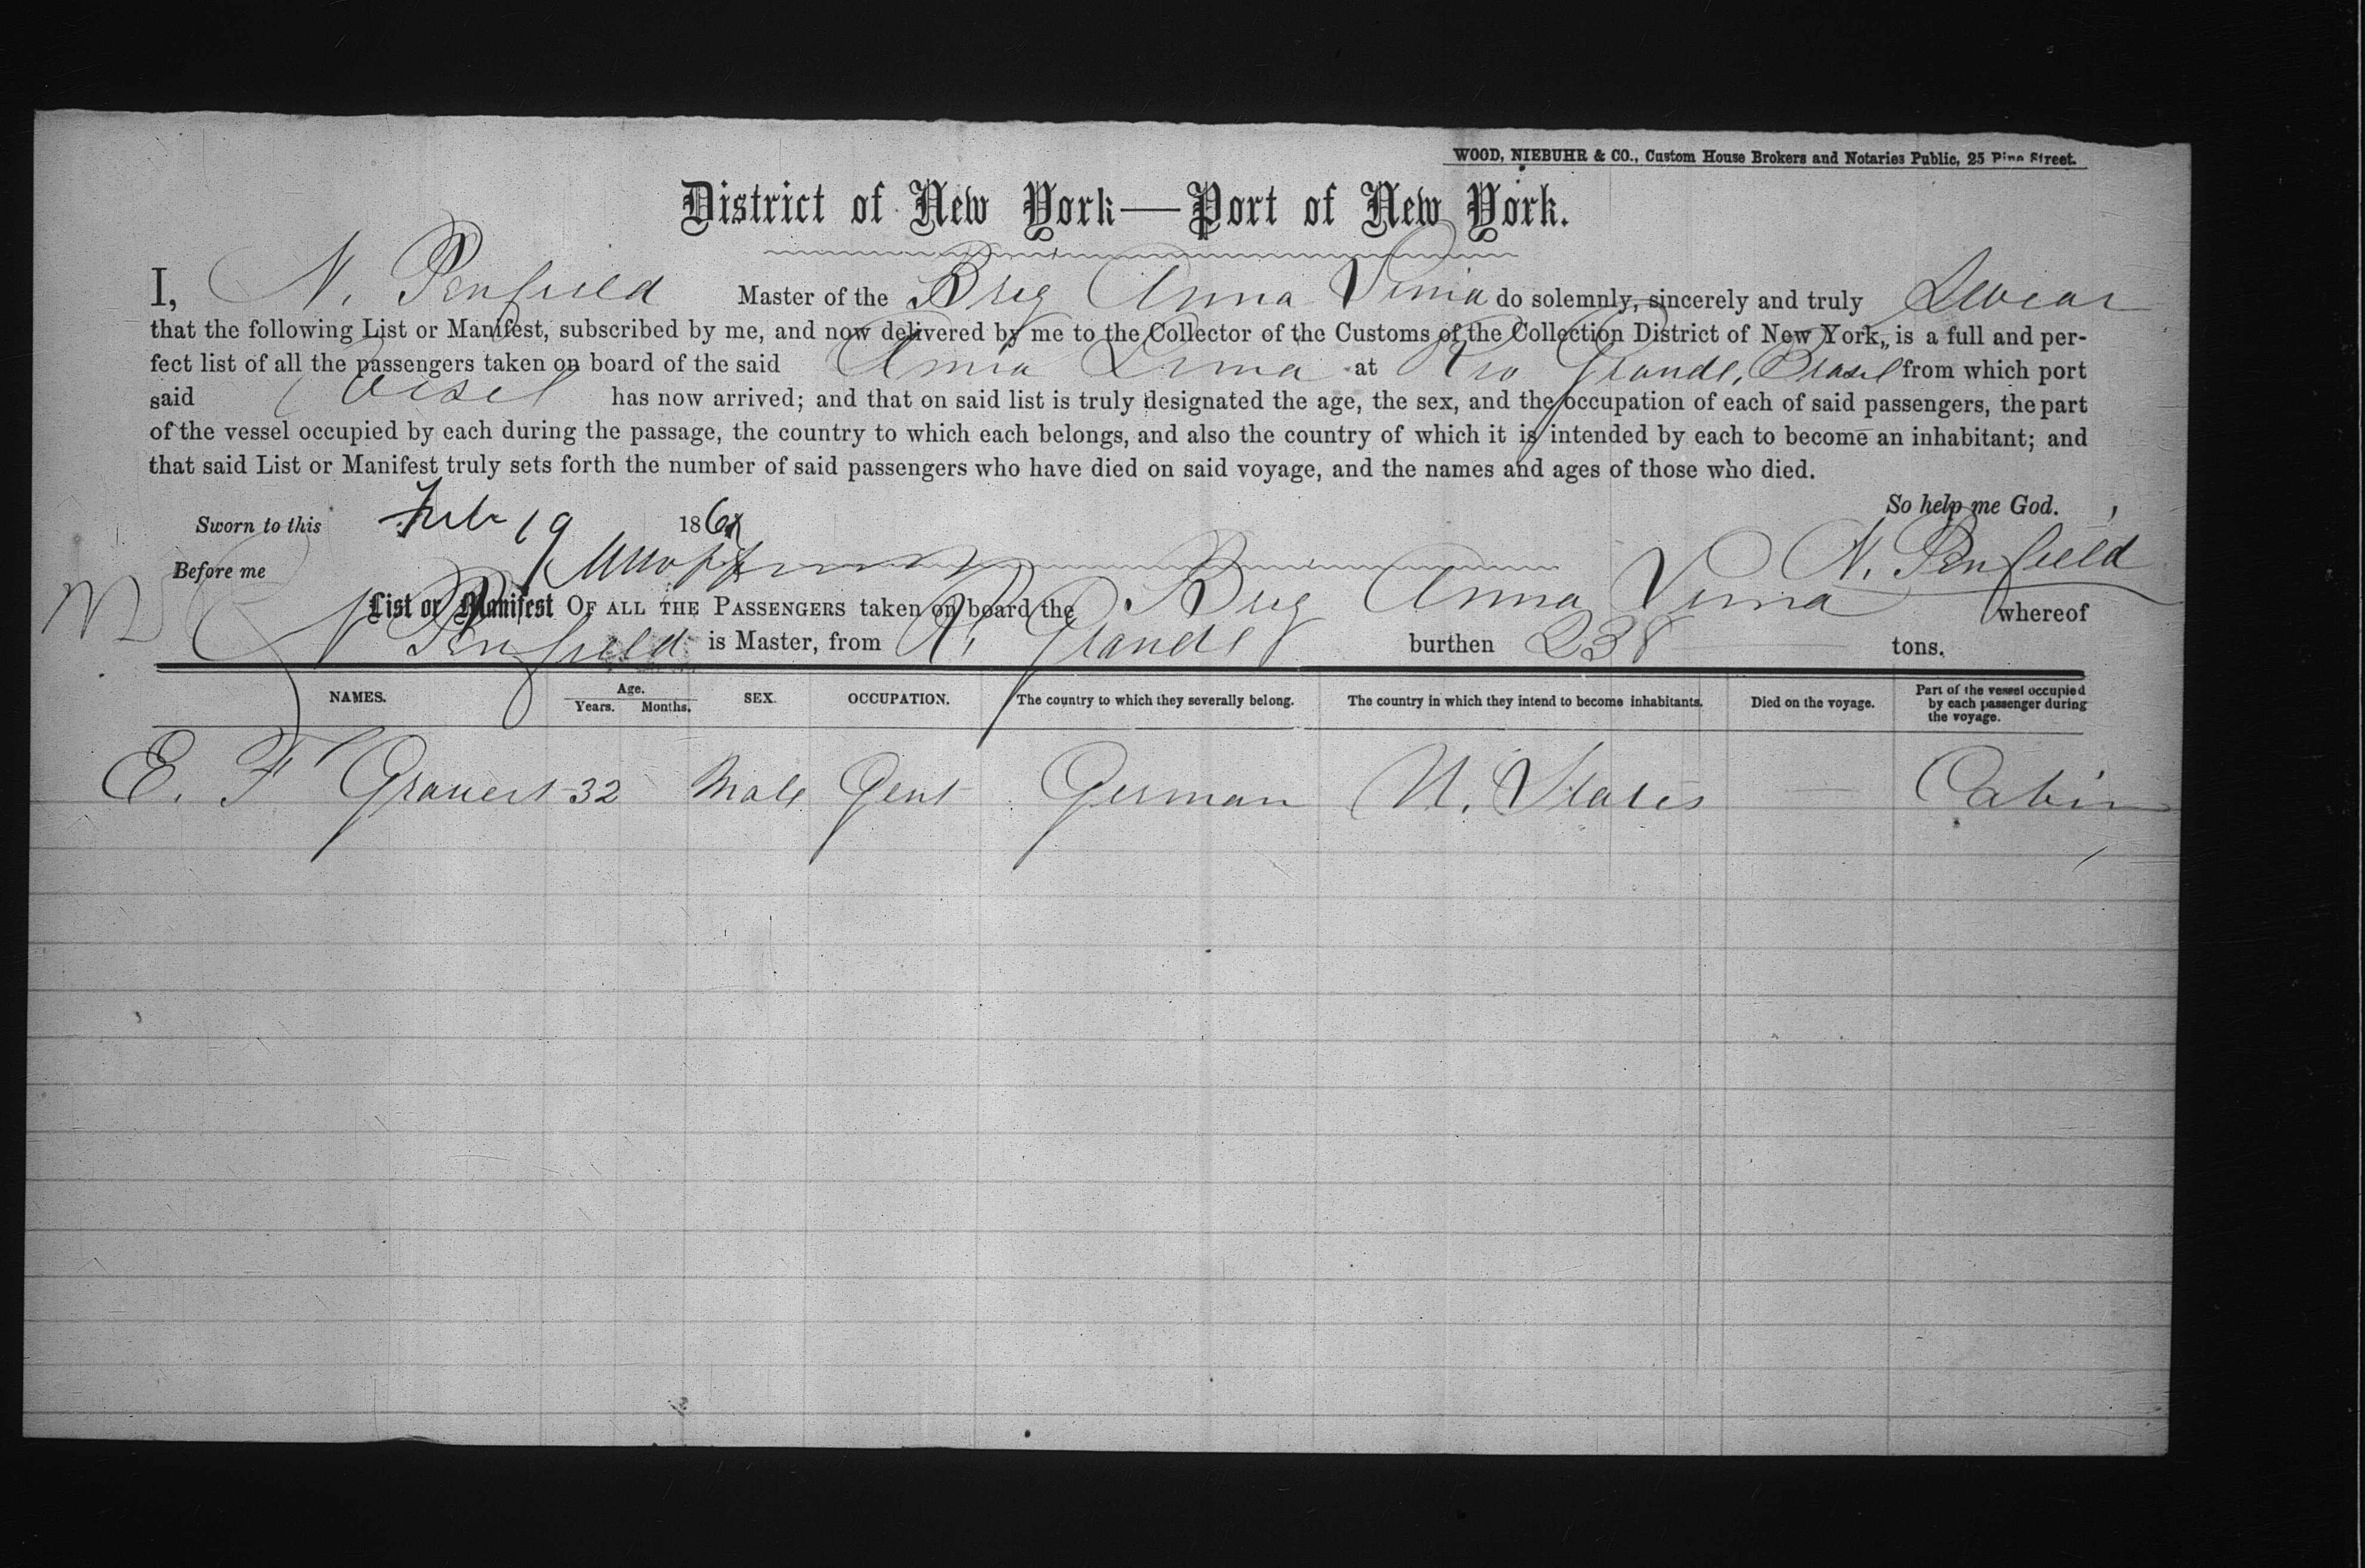 WOOD, NIEBUHR & CO., Custom House Brokers and Notaries Public, 25 Pine Street.
District of New York—Port of New York.
I, N. Penfield Master of the Brig Anna do solemnly, sincerely and truly Swear
that the following List or Manifest, subscribed by me, and now delivered by me to the Collector of the Customs of the Collection District of New York, is a full and per-
fect list of all the passengers taken on board of the said Anna at Rio Grande, Brasil from which port
said Vessel has now arrived; and that on said list is truly designated the age, the sex, and the occupation of each of said passengers, the part
of the vessel occupied by each during the passage, the country to which each belongs, and also the country of which it is intended by each to become an inhabitant; and
that said List or Manifest truly sets forth the number of said passengers who have died on said voyage, and the names and ages of those who died.
So help me God.
Sworn to this Feb 19 186
N. Penfield
Before me
List or Manifest OF ALL THE PASSENGERS taken on board the Brig Anna whereof
N Penfield is Master, from R. Grande burthen 238 tons.
NAMES. Age. Years. Months. SEX. OCCUPATION. The country to which they severally belong. The country in which they intend to become inhabitants. Died on the voyage. Part of the vessel occupied by each passenger during the voyage.
E. F Grauert 32 Male Gent German U. States — Cabin